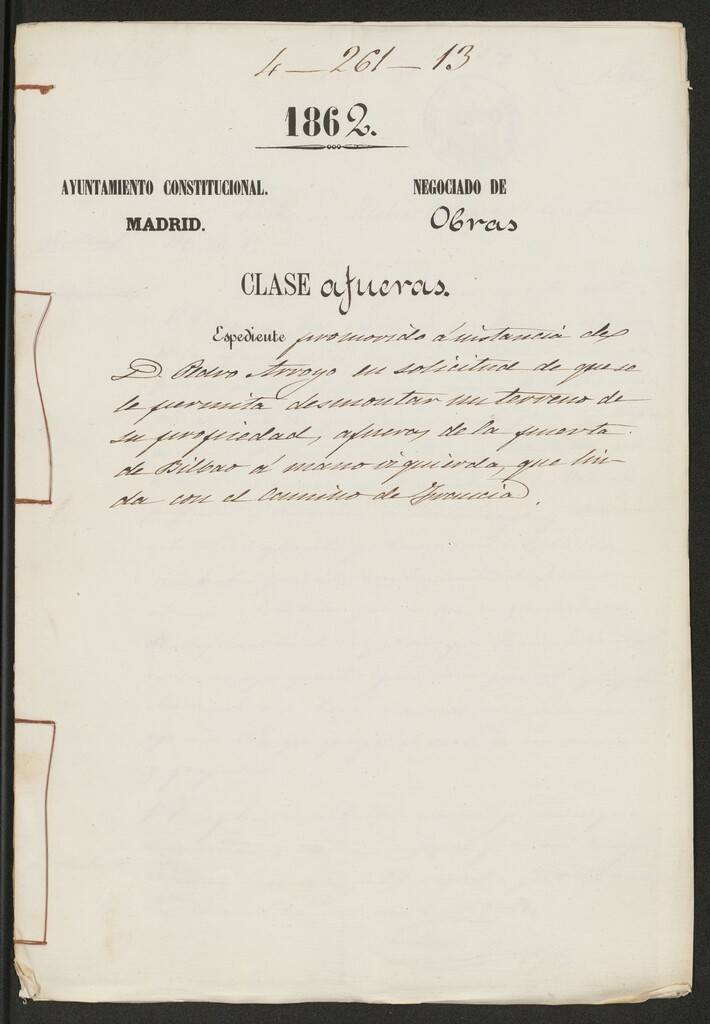 4 — 261 — 13
1862.
AYUNTAMIENTO CONSTITUCIONAL.
MADRID.
NEGOCIADO DE
Obras
CLASE afueras.
Espediente promovido á instancia de
D. Pedro Arroyo en solicitud de que se
le permita desmontar un terreno de
su propiedad, afueras de la puerta
de Bilbao á mano izquierda, que lin-
da con el Camino de Francia.